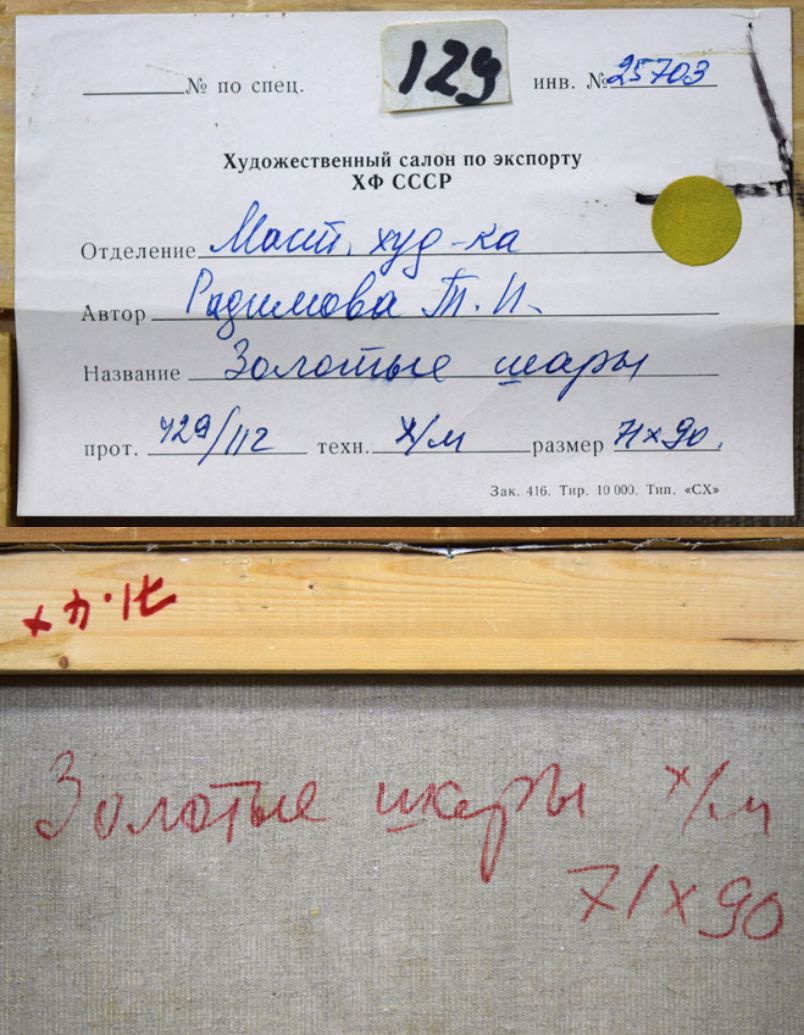 № по спец. 129 инв. № 25703
Художественный салон по экспорту
ХФ СССР
Отделение Маст. худ-ка
Автор Радимова Т. И.
Название Золотые шары
прот. 429/112 техн. х/м размер 71х90.
Зак. 416. Тир. 10 000. Тип. «СХ»
Золотые шары х/м
71х90